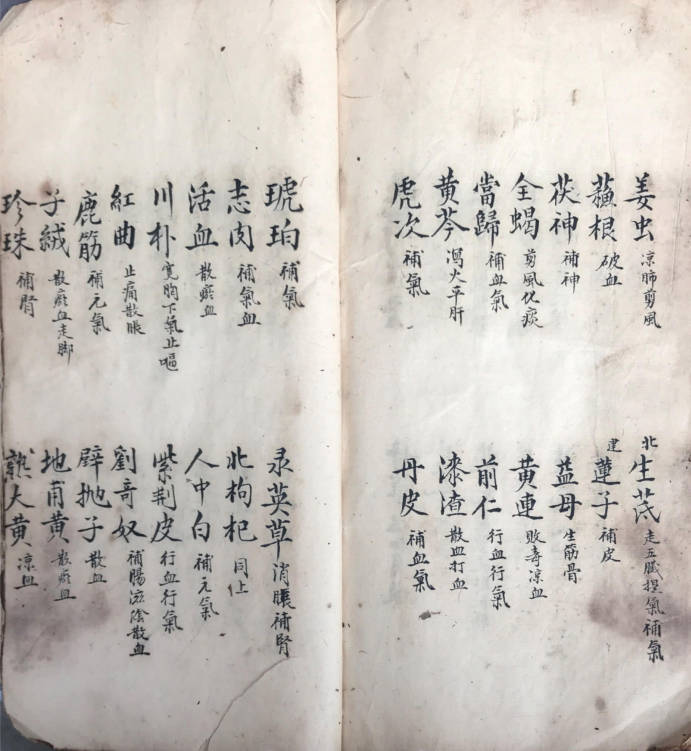 姜虫 凉肺剪風
蘓根 破血
茯神 補神
全蝎 剪風化痰
當歸 補血氣
黄芩 瀉火平肝
虎次 補氣
北生芪 走五臟提氣補氣
建蓮子 補皮
益母 生筋骨
黄連 敗毒凉血
前仁 行血行氣
漆渣 散血打血
丹皮 補血氣
琥珀 補氣
志肉 補氣血
活血 散瘀血
川朴 寬胸下氣止嘔
紅曲 止痛散脹
鹿筋 補元氣
子絨 散瘀血走脚
珍珠 補腎
英草 消脹補腎
北枸杞 同仩
人中白 補元氣
紫荆皮 行血行氣
劉哥奴 補腸滋陰散血
抛子 散血
地甫黄 散瘀血
熟大黄 凉血